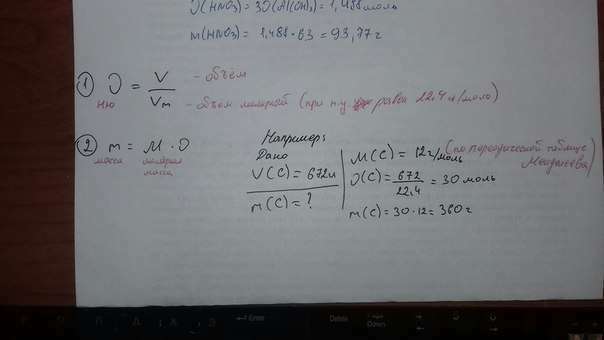 ϑ(HNO₃) = 3ϑ(Al(OH)₃) = 1,488 моль
m(HNO₃) = 1,488 · 63 = 93,77 г
① ϑ = V / Vm
- объём
ню
- объём молярный (при н.у. равен 22.4 л/моль)
② m = M · ϑ
масса молярная масса
Например:
Дано
V(C) = 672 л
m(C) = ?
M(C) = 12 г/моль
(по периодической таблице Менделеева)
ϑ(C) = 672 / 22,4 = 30 моль
m(C) = 30 · 12 = 360 г
Enter
Delete
Down